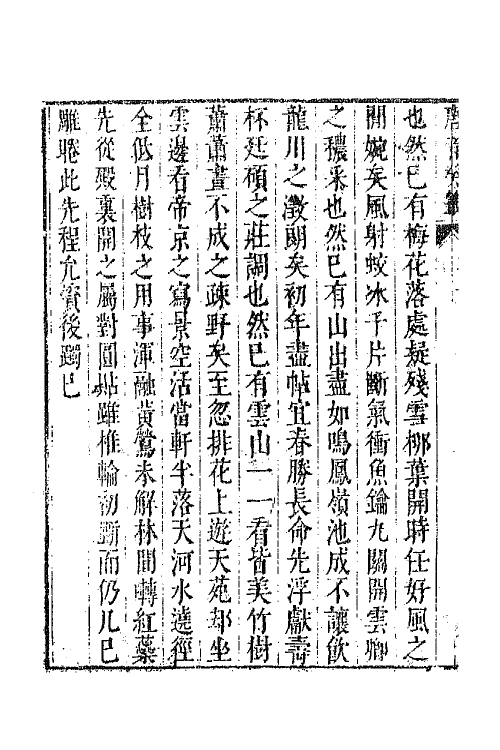 也然已有梅花落處疑殘雪柳葉開時任好風之
閒婉矣風射蛟冰千片斷氣衝魚鑰九關開雲卿
之穠采也然已有山出盡如鳴鳳嶺池成不讓飲
龍川之澂朗矣初年盡帖宜春勝長命先浮獻壽
杯廷碩之莊調也然已有雲山一一看皆美竹樹
蕭蕭畫不成之疎野矣至忽排花上遊天苑却坐
雲邊看帝京之寫景空活當軒半落天河水遶徑
全低月樹枝之用事渾融黃鶯未解林間囀紅蘂
先從殿裏開之屬對圓㸃雖椎輪初斵而仍几已
雕睠此先程允賓後躅已